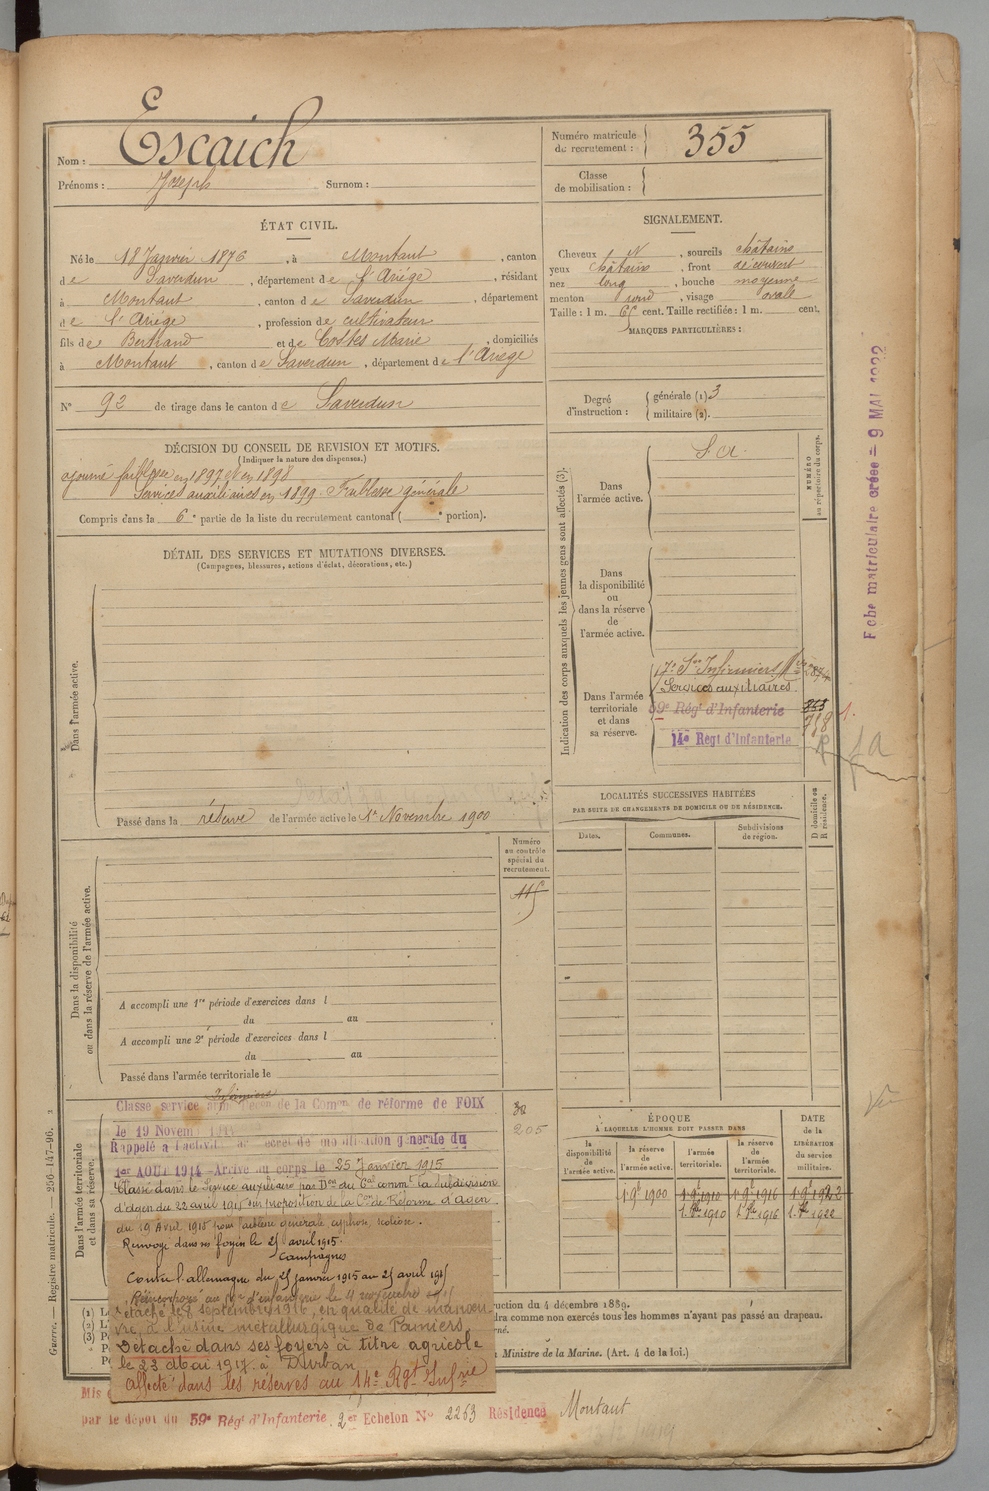 Nom : Escaich
Prénoms : Joseph Surnom :
Numéro matricule de recrutement : 355
Classe de mobilisation :
ÉTAT CIVIL.
Né le 18 Janvier 1876, à Montaut, canton
de Saverdun, département de l'Ariége, résidant
à Montaut, canton de Saverdun, département
de l'Ariége, profession de cultivateur
fils de Bertrand et de Costes Marie, domiciliés
à Montaut, canton de Saverdun, département de l'Ariége
N° 92 de tirage dans le canton de Saverdun
SIGNALEMENT.
Cheveux N, sourcils châtains
yeux châtains, front découvert
nez long, bouche moyenne
menton rond, visage ovale
Taille : 1 m. 65 cent. Taille rectifiée : 1 m. cent.
MARQUES PARTICULIÈRES :
Degré d'instruction : générale (1) 3
militaire (2).
DÉCISION DU CONSEIL DE REVISION ET MOTIFS.
(Indiquer la nature des dispenses.)
ajourné faiblesse en 1897 et en 1898
Services auxiliaires en 1899. Faiblesse générale
Compris dans la 6e partie de la liste du recrutement cantonal ( e portion).
DÉTAIL DES SERVICES ET MUTATIONS DIVERSES.
(Campagnes, blessures, actions d'éclat, décorations, etc.)
Dans l'armée active.
Passé dans la réserve de l'armée active le 1er Novembre 1900
Indication des corps auxquels les jeunes gens sont affectés (3).
Dans l'armée active.
S. a.
NUMÉRO au répertoire du corps.
Dans la disponibilité ou dans la réserve de l'armée active.
Dans l'armée territoriale et dans sa réserve.
17e Son Infirmiers
Services auxiliaires.
59e Régt d'Infanterie
14e Régt d'Infanterie
Fiche matriculaire créée = 9 MAI 1922
LOCALITÉS SUCCESSIVES HABITÉES
PAR SUITE DE CHANGEMENTS DE DOMICILE OU DE RÉSIDENCE.
Dates. Communes. Subdivisions de région.
D domicile ou R résidence.
Dans la disponibilité ou dans la réserve de l'armée active.
Numéro au contrôle spécial du recrutement.
115
A accompli une 1re période d'exercices dans l
du au
A accompli une 2e période d'exercices dans l
du au
Passé dans l'armée territoriale le
Dans l'armée territoriale et dans sa réserve.
Classe service armé Décon de la Comon de réforme de FOIX
le 19 Novem 1914
Rappelé à l'activité décret de mobilisation générale du
1er AOUT 1914 - Arrivé au corps le 25 Janvier 1915
Classé dans le Service auxiliaire par Don du Gal commt la subdivision
d'Agen du 22 avril 1915 sur proposition de la Con de Réforme d'Agen
du 19 Avril 1915 pour faiblesse générale cyphose, scoliose.
Renvoyé dans ses foyers le 25 avril 1915.
Campagnes
Contre l'allemagne du 25 janvier 1915 au 25 avril 1915
Détaché le 8 septembre 1916, en qualité de manœu-
vre, à l'usine métallurgique de Pamiers.
Détaché dans ses foyers à titre agricole
le 23 Mai 1917. à Durban
Affecté dans les réserves au 14e Rgt Infrie
38
205
ÉPOQUE
À LAQUELLE L'HOMME DOIT PASSER DANS
la disponibilité de l'armée active.
la réserve de l'armée active.
l'armée territoriale.
la réserve de l'armée territoriale.
DATE de la LIBÉRATION du service militaire.
1. 9e 1900 1. 9e 1910 1. 9e 1916 1. 9e 1922
1. 8bre 1910 1. 8bre 1916 1. 8bre 1922
ruction du 4 décembre 1889.
dra comme non exercés tous les hommes n'ayant pas passé au drapeau.
rné.
Ministre de la Marine. (Art. 4 de la loi.)
Guerre. — Registre matricule. — 256-147-96.
par le dépôt du 59e Régt d'Infanterie. 2er Echelon N° 2263 Résidence Montaut